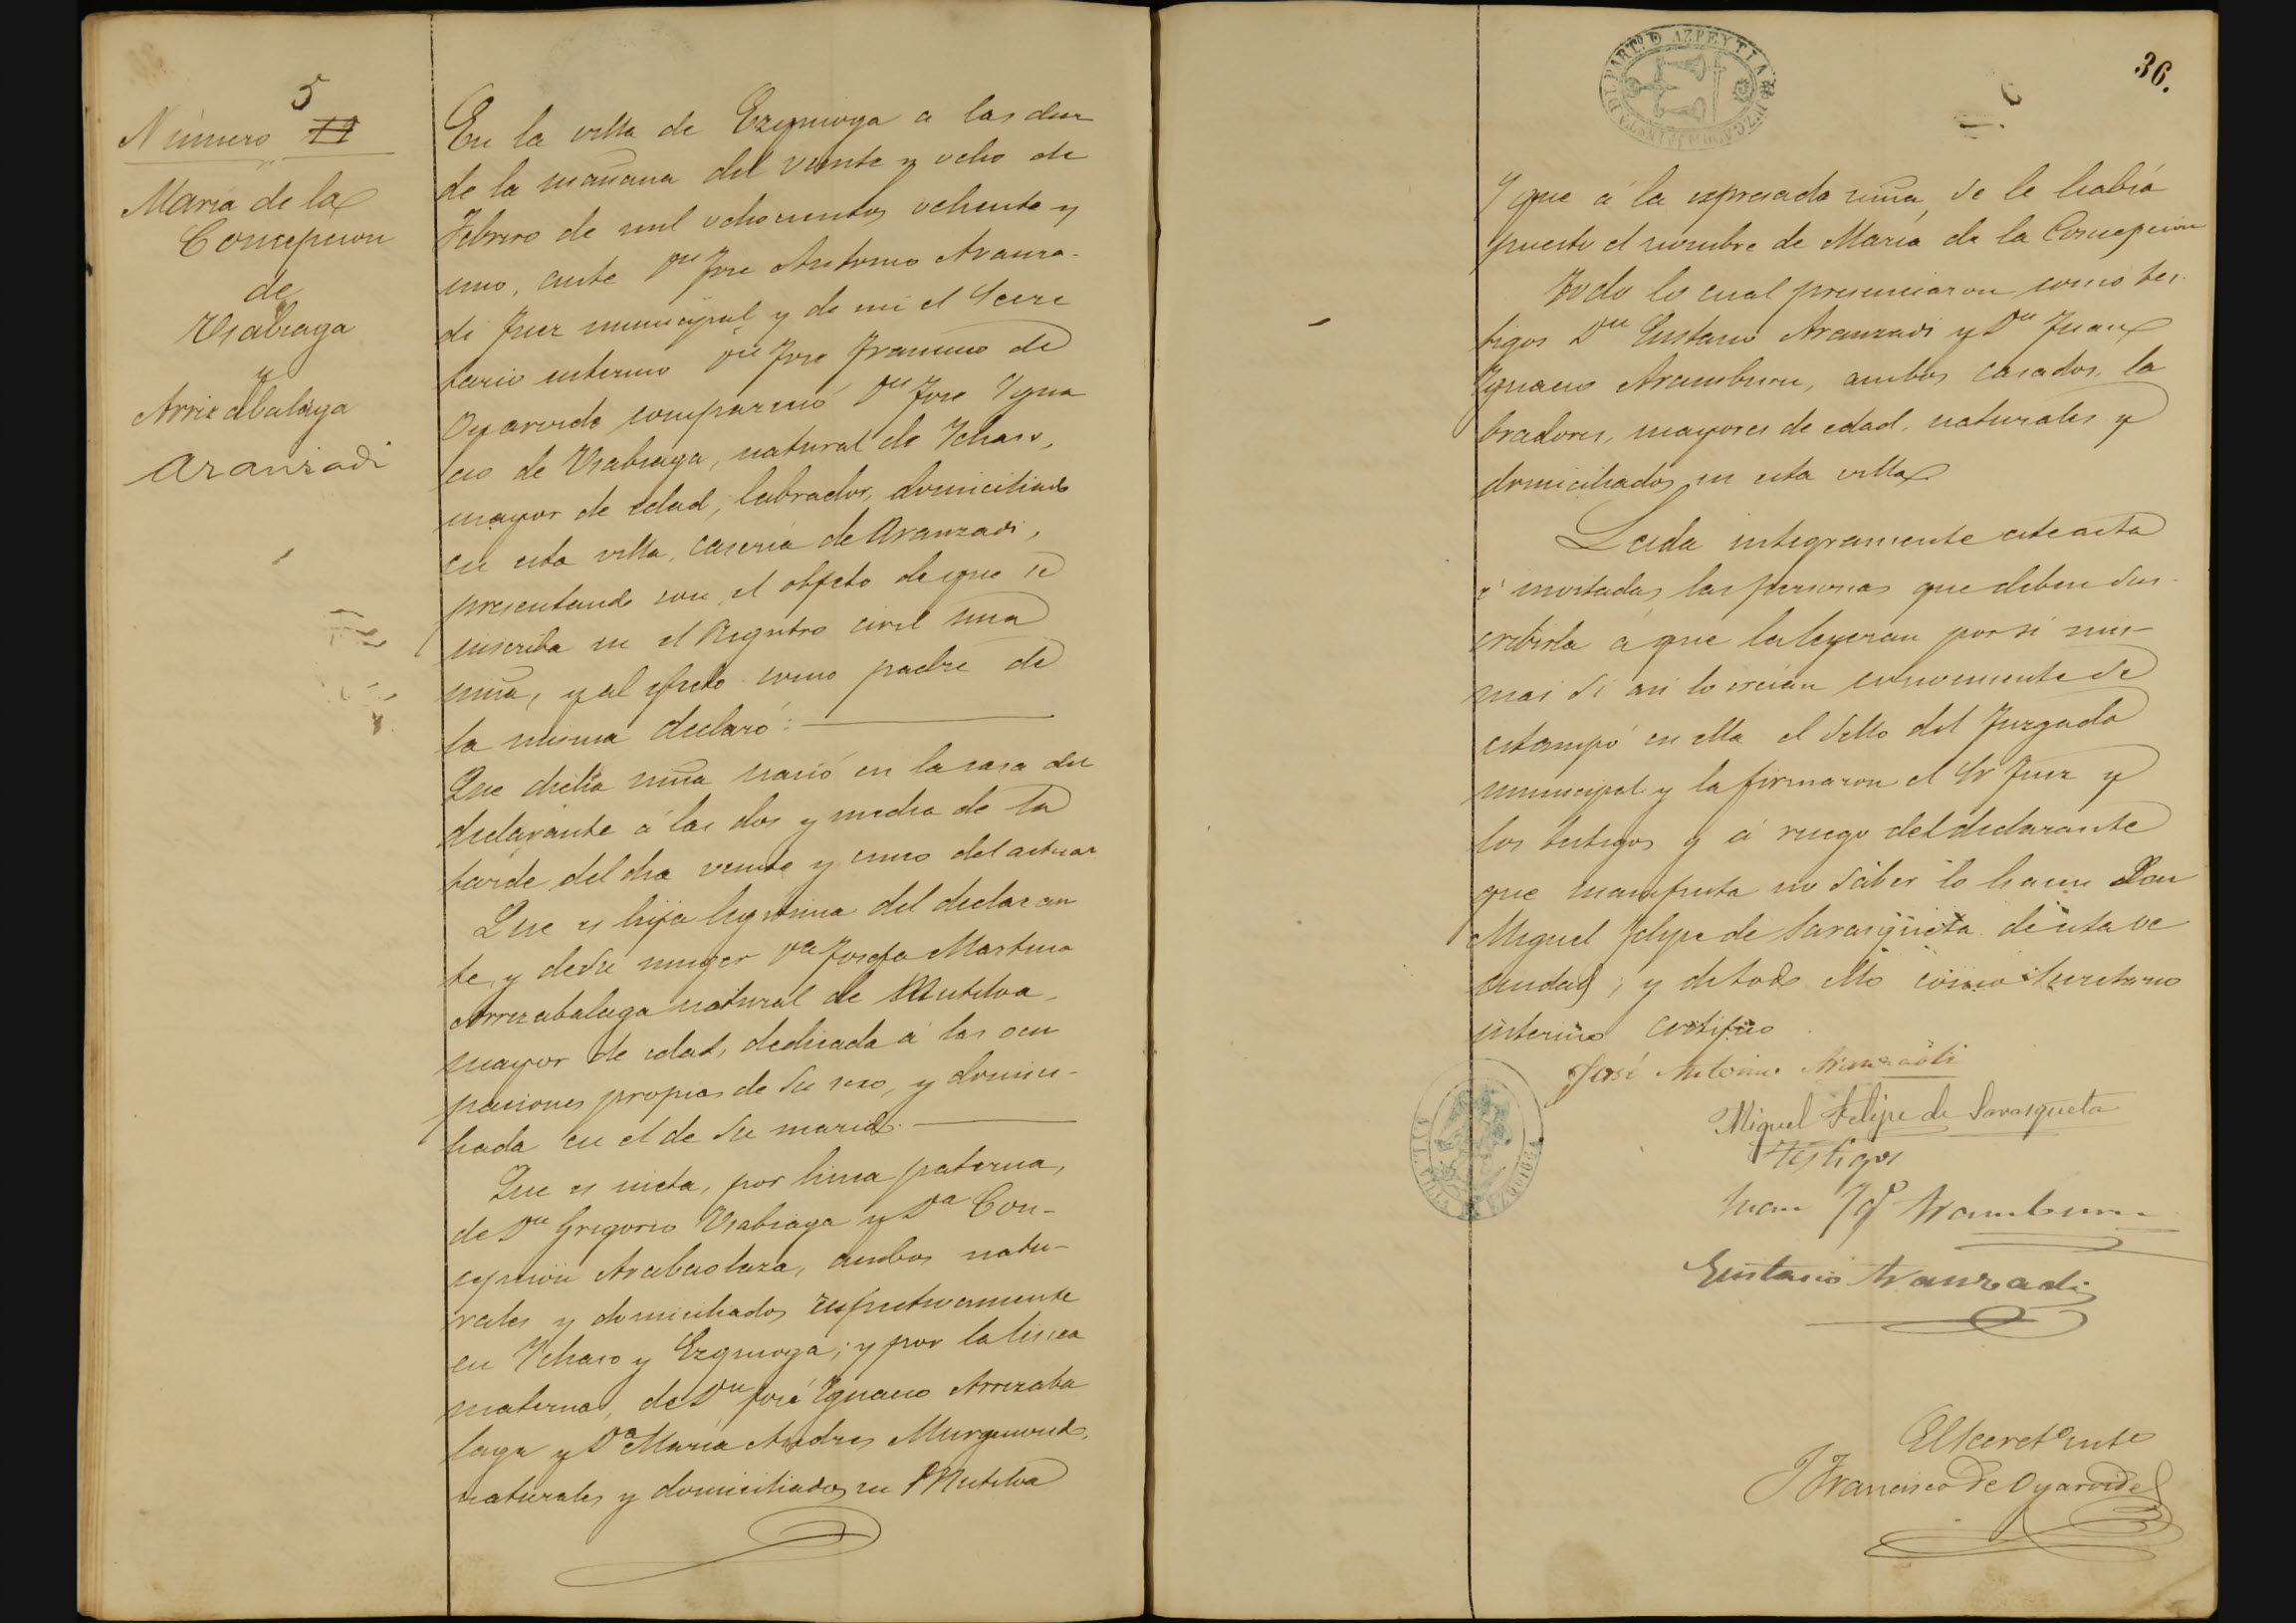 5
Número 11
María de la
Concepcion
de
Usabiaga
y
Arrizabalaga
Aranzadi
En la villa de Ezquioga a las diez
de la mañana del veinte y ocho de
Febrero de mil ochocientos ochenta y
uno, ante Dn Jose Antonio Aranza-
di Juez municipal y de mi el Secre
tario interino Dn Jose Francisco de
Oyarvide compareció Dn Jose Ygna
cio de Usabiaga, natural de Ychaso,
mayor de edad, labrador, domiciliado
en esta villa, caseria de Aranzadi,
presentando con el objeto de que se
inscriba en el Registro civil una
niña, y al efecto como padre de
la misma declaró:
Que dicha niña nació en la casa del
declarante á las dos y media de la
tarde del dia veinte y cinco del actual
Que es hija legitima del declaran
te, y de su muger Da Josefa Martina
Arrizabalaga natural de Mutiloa
mayor de edad, dedicada á las ocu
paciones propias de su sexo, y domici-
liada en el de su marido.
Que es nieta, por linea paterna,
de Dn Gregorio Usabiaga y Da Con-
cepcion Arabaolaza, ambos natu-
rales y domiciliados respectivamente
en Ychaso y Ezquioga; y por la linea
materna, de Dn José Ygnacio Arrizaba
laga y Da Maria Andres Murguiondo,
naturales y domiciliados en Mutiloa
PARTº. DE AZPEYTIA
36.
Y que á la expresada niña, se le había
puesto el nombre de María de la Concepcion
Todo lo cual presenciaron como tes-
tigos Dn Eustasio Aranzadi y Dn Juan
Ygnacio Aramburu, ambos casados, la
bradores, mayores de edad, naturales y
domiciliados en esta villa
Leida integramente este acta
é invitadas las personas que deben sus-
cribirla á que la leyeran por si mis-
mas si asi lo creian conveniente se
estampó en ella el sello del Juzgado
municipal y la firmaron el Sr Juez y
los testigos y á ruego del declarante
que manifiesta no saber lo hacen Don
Miguel Felipe de Sarasqueta de esta ve
cindad; y de todo ello como Secretario
interino certifico.
José Antonio Aranzadi
Miguel Felipe de Sarasqueta
Testigos
Juan Ygº Aramburu
Eustasio Aranzadi
El Secretº intº
J Francisco de Oyarvide